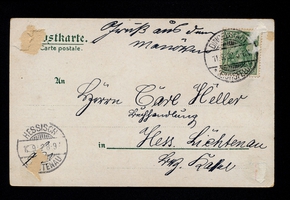 Postkarte.
Carte postale.
Gruß aus dem
Manöver
An
Herrn Carl Heller
Buchhandlung
in Hess. Lichtenau
Bez. Kassel
HESSISCH
LICHTENAU